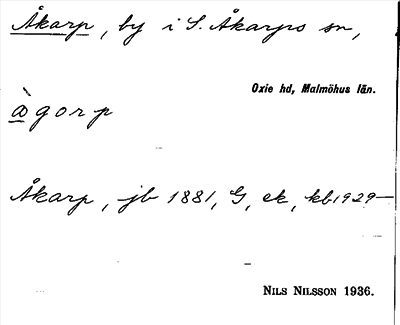 Åkarp, by i S. Åkarps sn,
Oxie hd, Malmöhus län.
ə̀gorp
Åkarp, jb 1881, G, ek, kb 1929—
NILS NILSSON 1936.